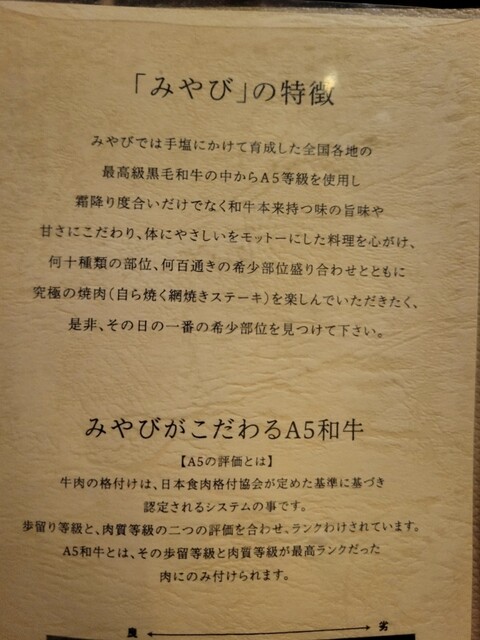 「みやび」の特徴
みやびでは手塩にかけて育成した全国各地の
最高級黒毛和牛の中からA5等級を使用し
霜降り度合いだけでなく和牛本来持つ味の旨味や
甘さにこだわり、体にやさしいをモットーにした料理を心がけ、
何十種類の部位、何百通きの希少部位盛り合わせとともに
究極の焼肉(自ら焼く網焼きステーキ)を楽しんでいただきたく、
是非、その日の一番の希少部位を見つけて下さい。
みやびがこだわるA5和牛
【A5の評価とは】
牛肉の格付けは、日本食肉格付協会が定めた基準に基づき
認定されるシステムの事です。
歩留り等級と、肉質等級の二つの評価を合わせ、ランクわけされています。
A5和牛とは、その歩留等級と肉質等級が最高ランクだった
肉にのみ付けられます。
良 劣